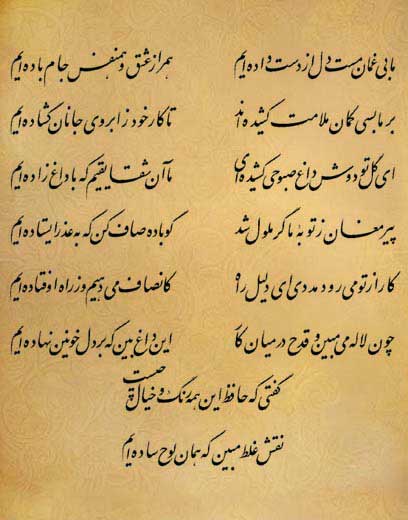 ما بی غمان مست دل از دست داده ایم همراز عشق و همنفس جام باده ایم
بر ما بسی کمان ملامت کشیده اند تا کار خود ز ابروی جانان گشاده ایم
ای گل تو دوش داغ صبوحی کشیده ای ما آن شقایقیم که با داغ زاده ایم
پیر مغان ز توبه ما گر ملول شد گو باده صاف کن که به عذر ایستاده ایم
کار از تو می رود مددی ای دلیل راه کانصاف می دهیم و ز راه اوفتاده ایم
چون لاله می مبین و قدح در میان کار این داغ بین که بر دل خونین نهاده ایم
گفتی که حافظ این همه رنگ و خیال چیست
نقش غلط مبین که همان لوح ساده ایم